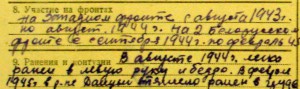 8. Участие на фронтах
На Западном фронте с августа 1943г.
по август 1944г. На 2 Белорусском
фронте с сентября 1944г. по февраль 45
9. Ранения и контузии В августе 1944г. легко
ранен в левую руку и бедро. В феврале
1945г. в р-не тяжело ранен в грудь